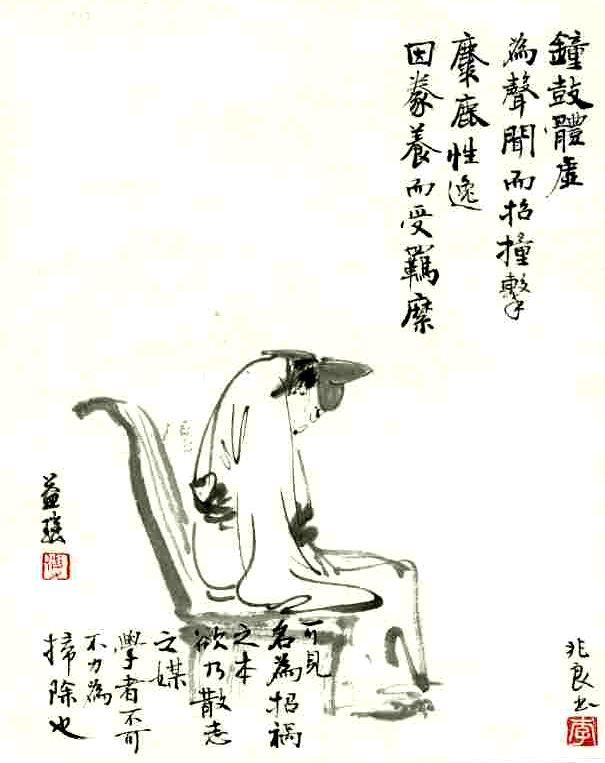 鐘鼓體虛
為聲聞而招撞擊
麋鹿性逸
因豢養而受羈縻
可見
名為招禍
之本
欲乃散志
之媒
學者不可
不力為
掃除也
兆良书
李
益